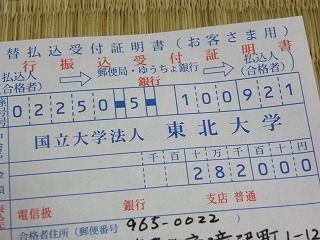 替払込受付証明書(お客さま用)
行振込受付証明書
払込人(合格者) 郵便局・ゆうちょ銀行 払込人(合格者)
02250 5 100921
国立大学法人 東北大学
千百十万千百十円
282000
銀行 支店 普通
電信扱
合格者住所(郵便番号 965-0022
町1-12